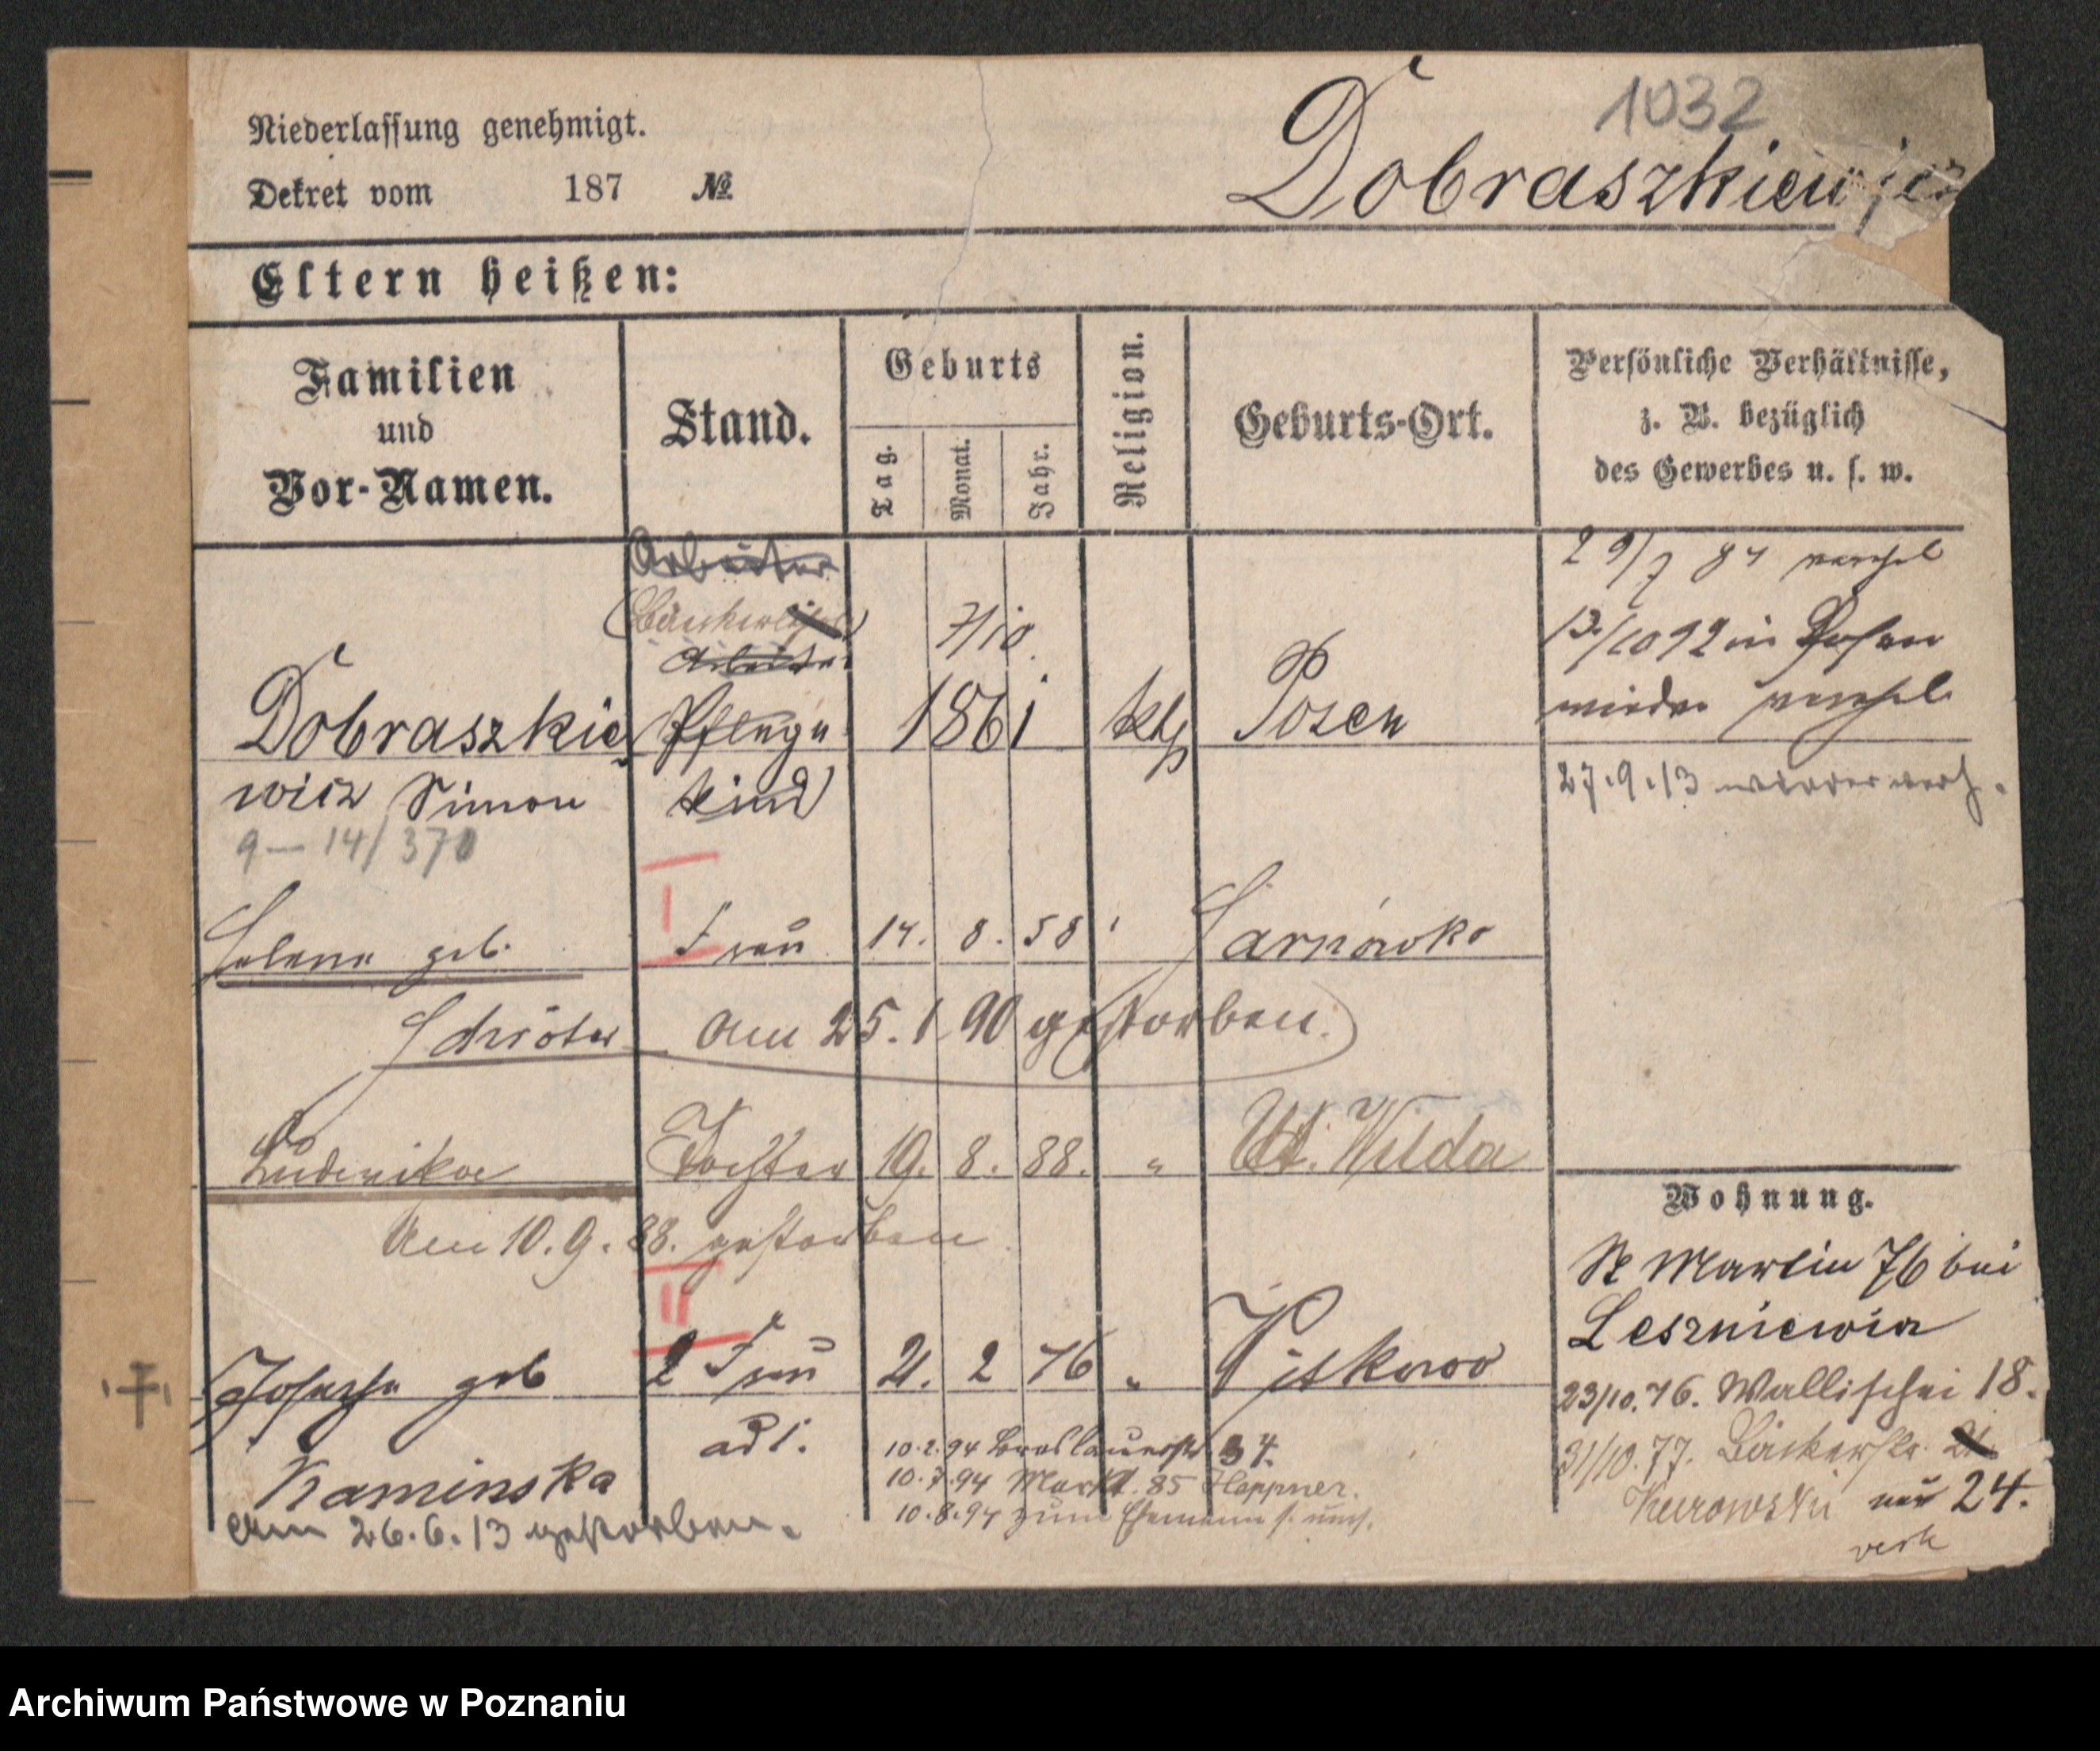 1032
Niederlassung genehmigt.
Dekret vom 187 №
Dobraszkiewicz
Eltern heißen:
Familien und Vor-Namen.
Stand.
Geburts
Tag. Monat. Jahr.
Religion.
Geburts-Ort.
Persönliche Verhältnisse, z. B. bezüglich des Gewerbes u. s. w.
Arbeiter
Arbeiter
7/10
Dobraszkie Pflege 1861 kth Posen
wicz Simon kind
9-14/370
29/7 84 vereh
13/10 92 in Posen
wieder vereh
27.9.13 wieder verh.
I
Helene geb. Frau 14. 8. 58 " Sarnowko
Schröter am 25. 1 90 gestorben.
Ludovika Tochter 19. 8. 88. " Ut. Wilda
Am 10. 9. 88. gestorben
II
Josepha geb 2 Frau 21. 2 76 "
Kaminska ad 1. 10.2.94 Breslauerstr. 34.
10.7.94 Markt. 85 Heppner.
10.8.94 zum Ehemann
am 26.6.13 gestorben.
Wohnung.
St Martin 76 bei
Leszniewicz
23/10. 76. Wallischei 18.
31/10. 77. Bäckerstr. 21
Kurowski nur 24.
Archiwum Państwowe w Poznaniu